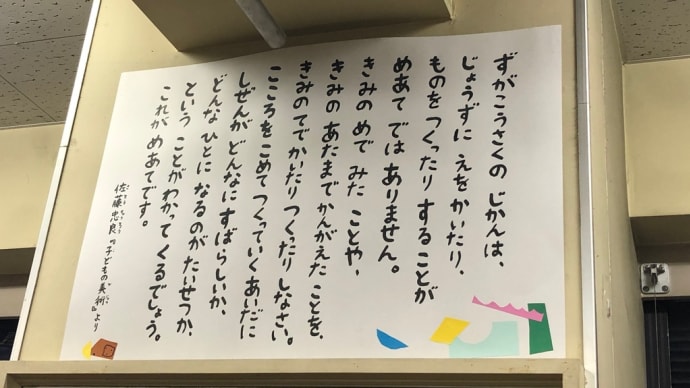 ずがこうさくの じかんは、
じょうずに えをかいたり、
ものを つくったり することが
めあて では ありません。
きみの めで みた ことや、
きみの あたまで かんがえた ことを、
きみのてで かいたり つくったり しなさい。
こころを こめて つくっていく あいだに
しぜんが どんなに すばらしいか、
どんな ひとに なるのが たいせつか、
という ことが わかって くるでしょう。
これが めあてです。
佐藤忠良『子どもの美術』より